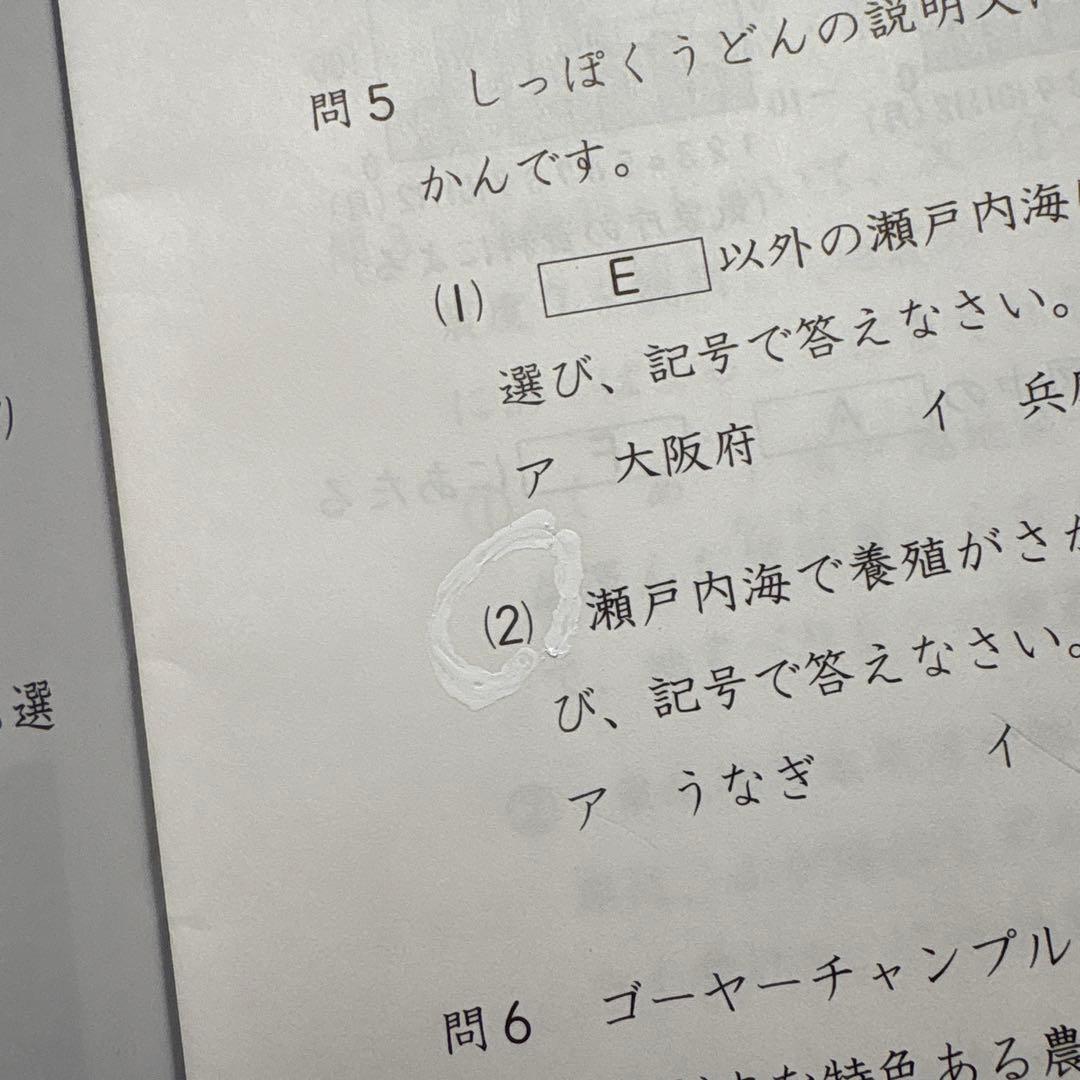 問5 しっぽくうどんの説明文
かんです。
(1) E 以外の瀬戸内海
選び、記号で答えなさい。
ア 大阪府 イ 兵
(2) 瀬戸内海で養殖がさか
び、記号で答えなさい。
ア うなぎ イ
問6 ゴーヤーチャンプル
特色ある農
選